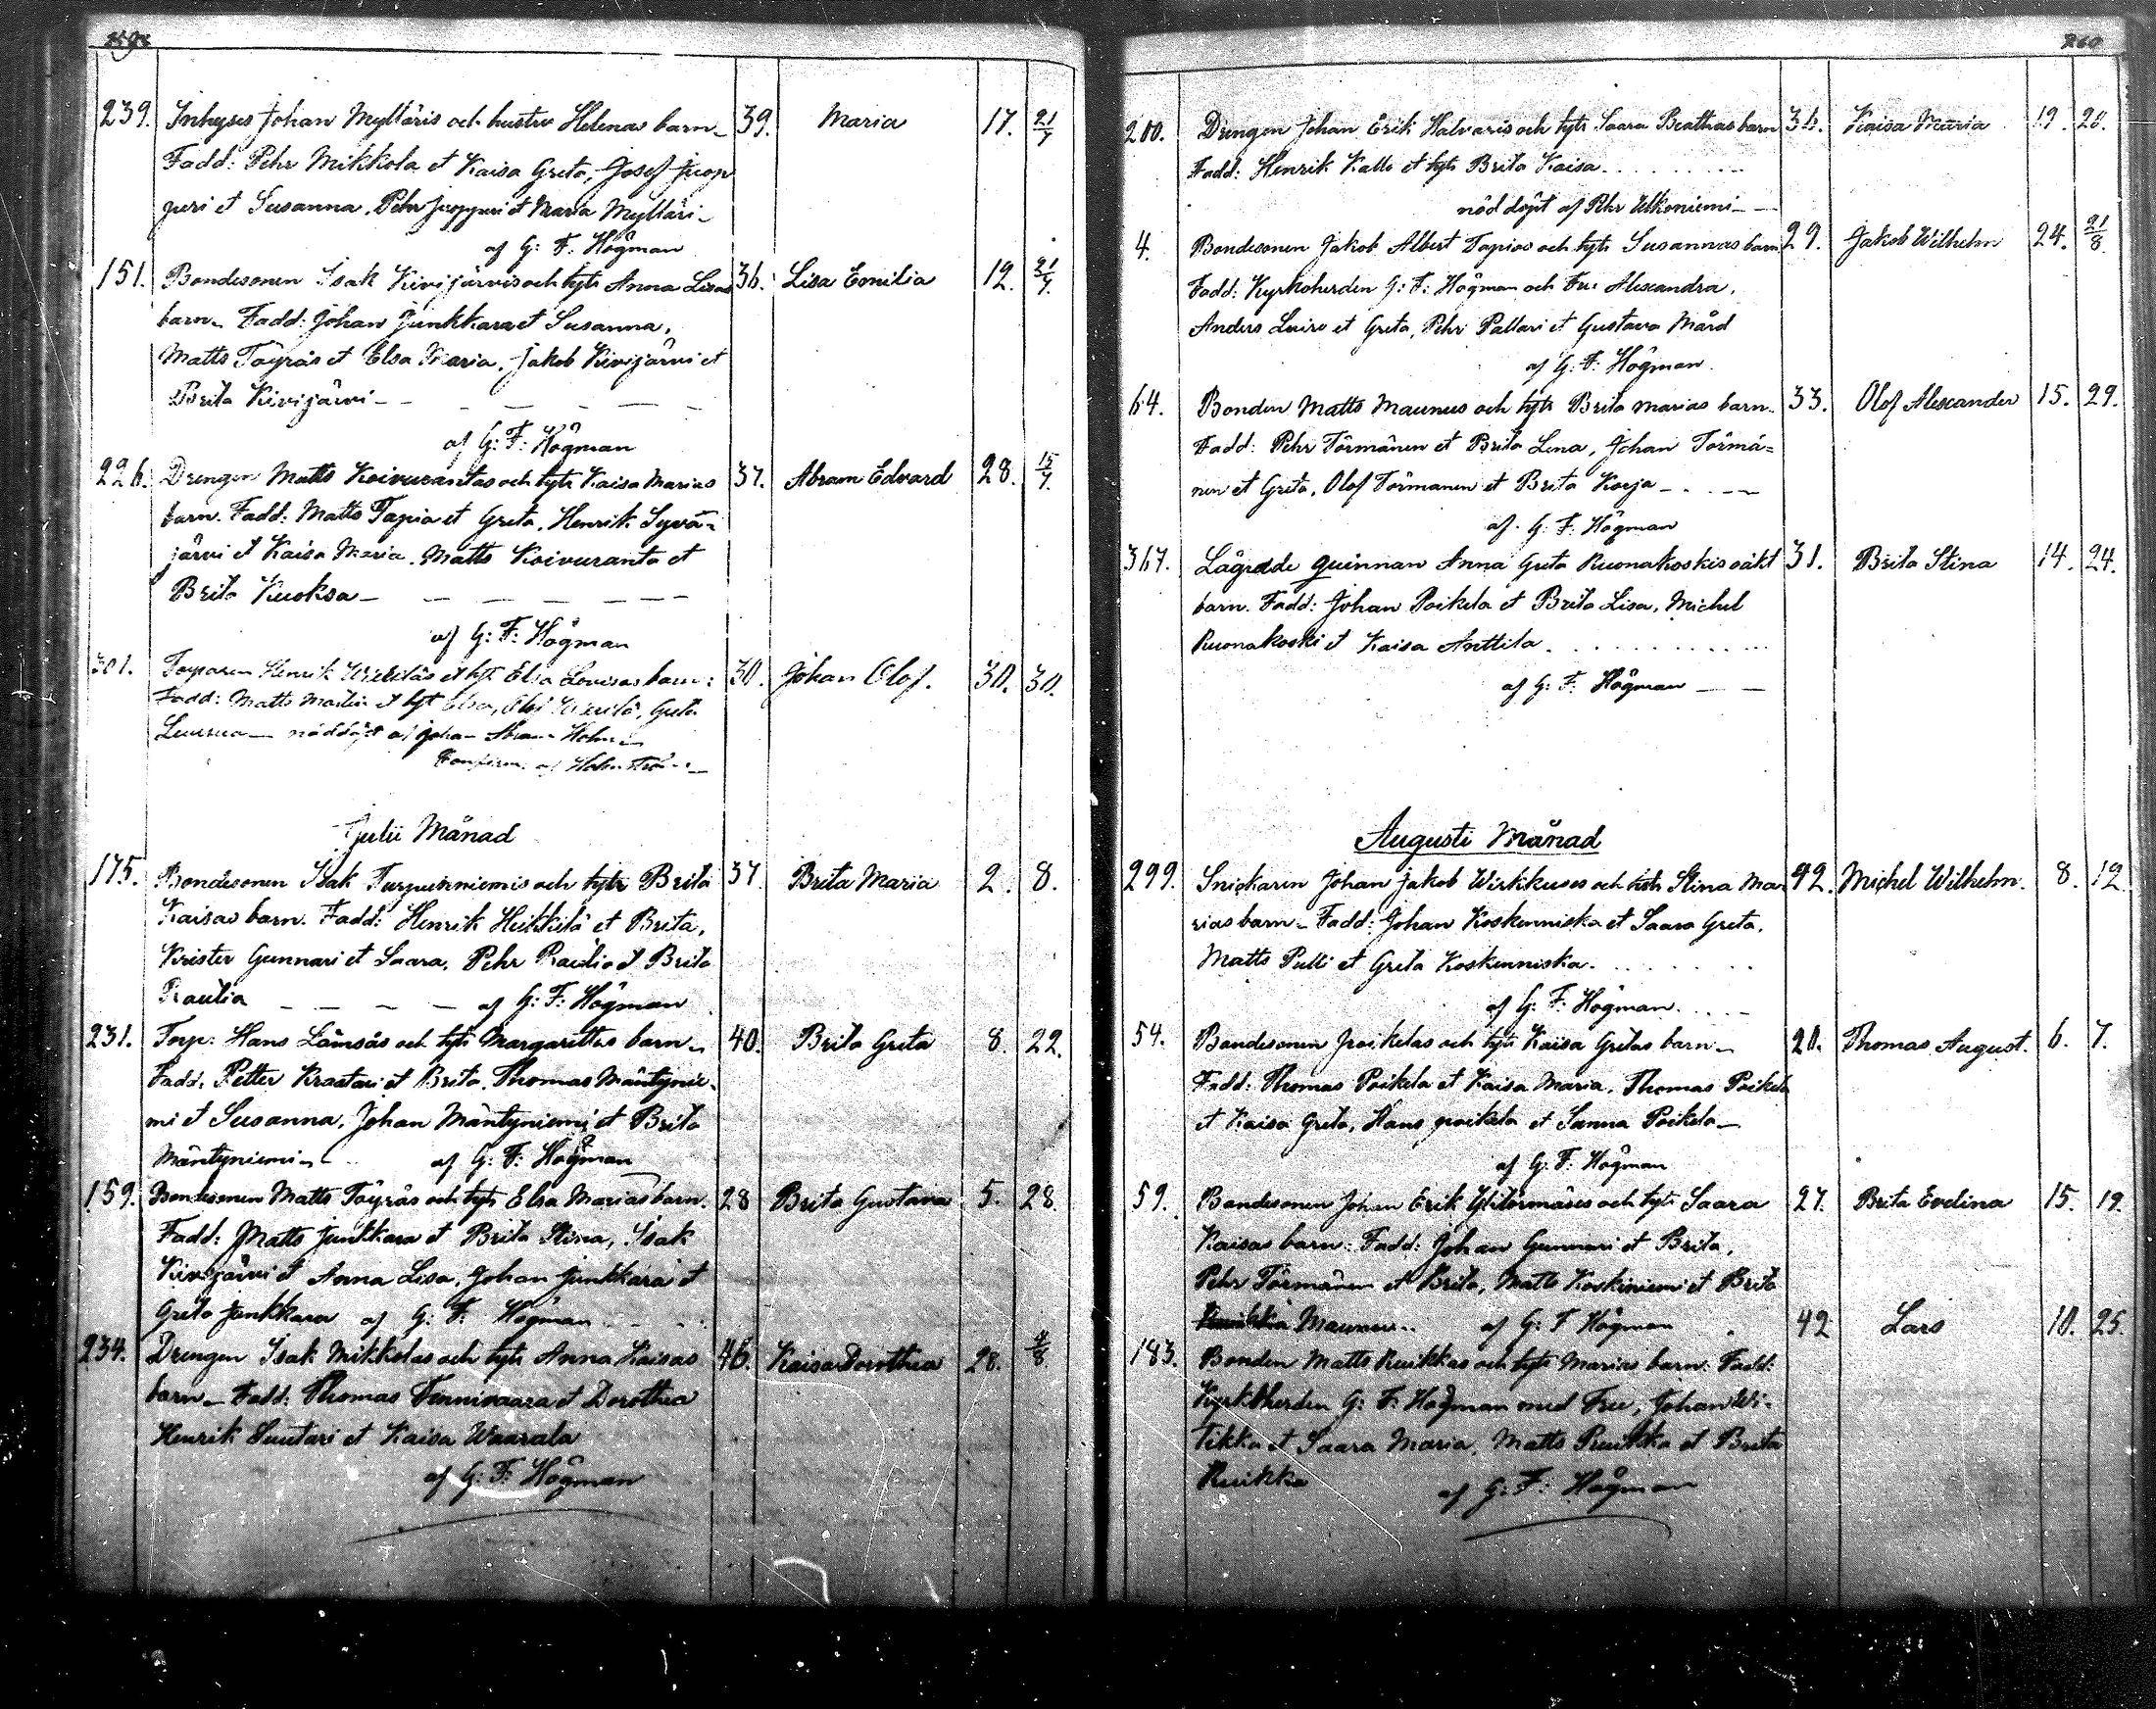 239. Inhyses Johan Mylläris och hustru Helenas barn 39. Maria 17. 21/7
Fadd: Pehr Mikkola et Kaisa Greta, Josef Juop
peri et Susanna. Pehr Juopperi et Maria Mylläri
af G: F: Högman
151. Bondesonen Isak Kivijärvis och hst Anna Lisas 36. Lisa Emilia 12. 21/7.
barn. Fadd: Johan Junkkara et Susanna,
Matts Töyräs et Elsa Maria, Jakob Kivijärvi et
Brita Kivijärvi
af G: F: Högman
226. Drengen Matts Koivurantas och hst Kaisa Marias 37. Abram Edvard 28. 15/7.
barn. Fadd: Matts Tapia et Greta, Henrik Syvä-
järvi et Kaisa Maria. Matts Koivuranta et
Brita Kuoksa
af G: F: Högman
301. Torparen Henrik et hst Elsa Lovisas barn: 30. Johan Olof. 30. 30.
Fadd: Matts et hst Elsa, Greta
nöddöpt af Johan Holm
af Holmström
Julii Månad
175. Bondesonen Isak Turpeenniemis och hst Brita 37. Brita Maria 2. 8.
Kaisas barn. Fadd: Henrik Heikkilä et Brita,
Krister Gunnari et Saara, Pehr Rautio et Brita
Rautia af G: F: Högman
231. Torp: Hans Lämsäs och hst Margarettas barn 40. Brita Greta 8. 22.
Fadd. Petter Kraatari et Brita. Thomas Mäntynie-
mi et Susanna, Johan Mäntyniemi et Brita
Mäntyniemi af G: F: Högman
159. Bondesonen Matts Töyräs och hst Elsa Marias barn. 28 Brita Gustava 5. 28.
Fadd: Matts Junkkara et Brita Stina, Isak
Kivijärvi et Anna Lisa, Johan Junkkara et
Greta Junkkara af G: F: Högman
234. Drengen Isak Mikkolas och hst Anna Kaisas 46. Kaisa Dorothea 28. 4/8
barn Fadd: Thomas Finnivaara et Dorothea
Henrik Suutari et Kaisa Waarala
af G: F: Högman
260
200. Drengen Johan Erik Halvaris och hst Saara Beathas barn 36. Kaisa Maria 19. 20.
Fadd: Henrik Kallo et hst Brita Kaisa
nöddöpt af Pehr Ulkoniemi
4. Bondesonen Jakob Albert Tapios och hst Susannas barn 29. Jakob Wilhelm 24. 21/8.
Fadd: Kyrkoherden G: F: Högman och Fru Alexandra,
Anders Luiro et Greta, Pehr Pallari et Gustava Mård
af G: F: Högman.
64. Bonden Matts Maunus och hst Brita Marias barn. 33. Olof Alexander 15. 29.
Fadd: Pehr Törmänen et Brita Lena, Johan Törmä=
nen et Greta, Olof Törmanen et Brita Korja
af. G: F: Högman
367. Lägrade quinnan Anna Greta Ruonakoskis oäkt 31. Brita Stina 14. 24.
barn. Fadd: Johan Poikela et Brita Lisa, Michel
Ruonakoski et Kaisa Anttila
af G: F: Högman
Augusti Månad
299. Snickaren Johan Jakob Wirkkuses och hst Stina Ma 42. Michel Wilhelm. 8. 12.
rias barn Fadd: Johan Koskenniska et Saara Greta,
Matts Pulli et Greta Koskenniska.
af G: F: Högman
54. Bondesonen Poikelas och hst Kaisa Gretas barn 20. Thomas August. 6. 7.
Fadd: Thomas Poikela et Kaisa Maria, Thomas Poikela
et Kaisa Greta, Hans poikela et Sanna Poikela
af G: F: Högman
59. Bondesonen Johan Erik Ylitörmäses och hst Saara 27. Brita Evelina 15. 19.
Kaisas barn. Fadd: Johan Gunnari et Brita,
Pehr Törmänen et Brita, Matts Koskiniemi et Brita
Maunu af G: F Högman
183. Bonden Matts Ruikkas och hst Marias barn. Fadd: 42 Lars 10. 25.
Kyrkherden G: F: Högman med Fru, Johan Wi-
tikka et Saara Maria, Matts Ruikka et Brita
Ruikka af G: F: Högman